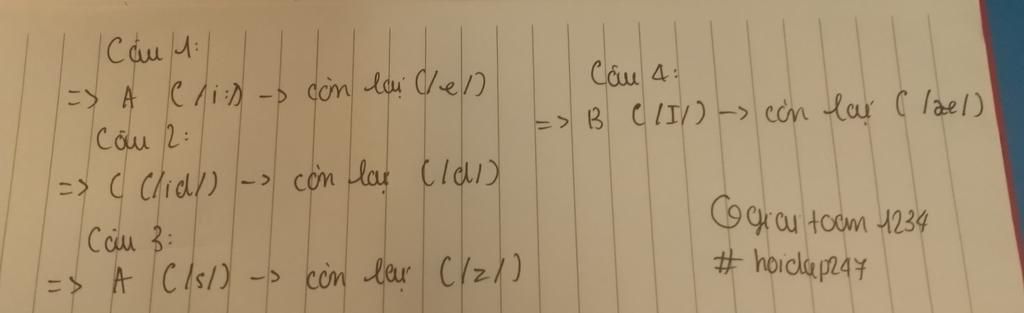 Câu 1:
=> A (/i:/) -> còn lại (/e/)
Câu 2:
=> C (/id/) -> còn lại (/d/)
Câu 3:
=> A (/s/) -> còn lại (/z/)
Câu 4:
=> B (/I/) -> còn lại (/æ/)
@giaitoan1234
# hoidap247